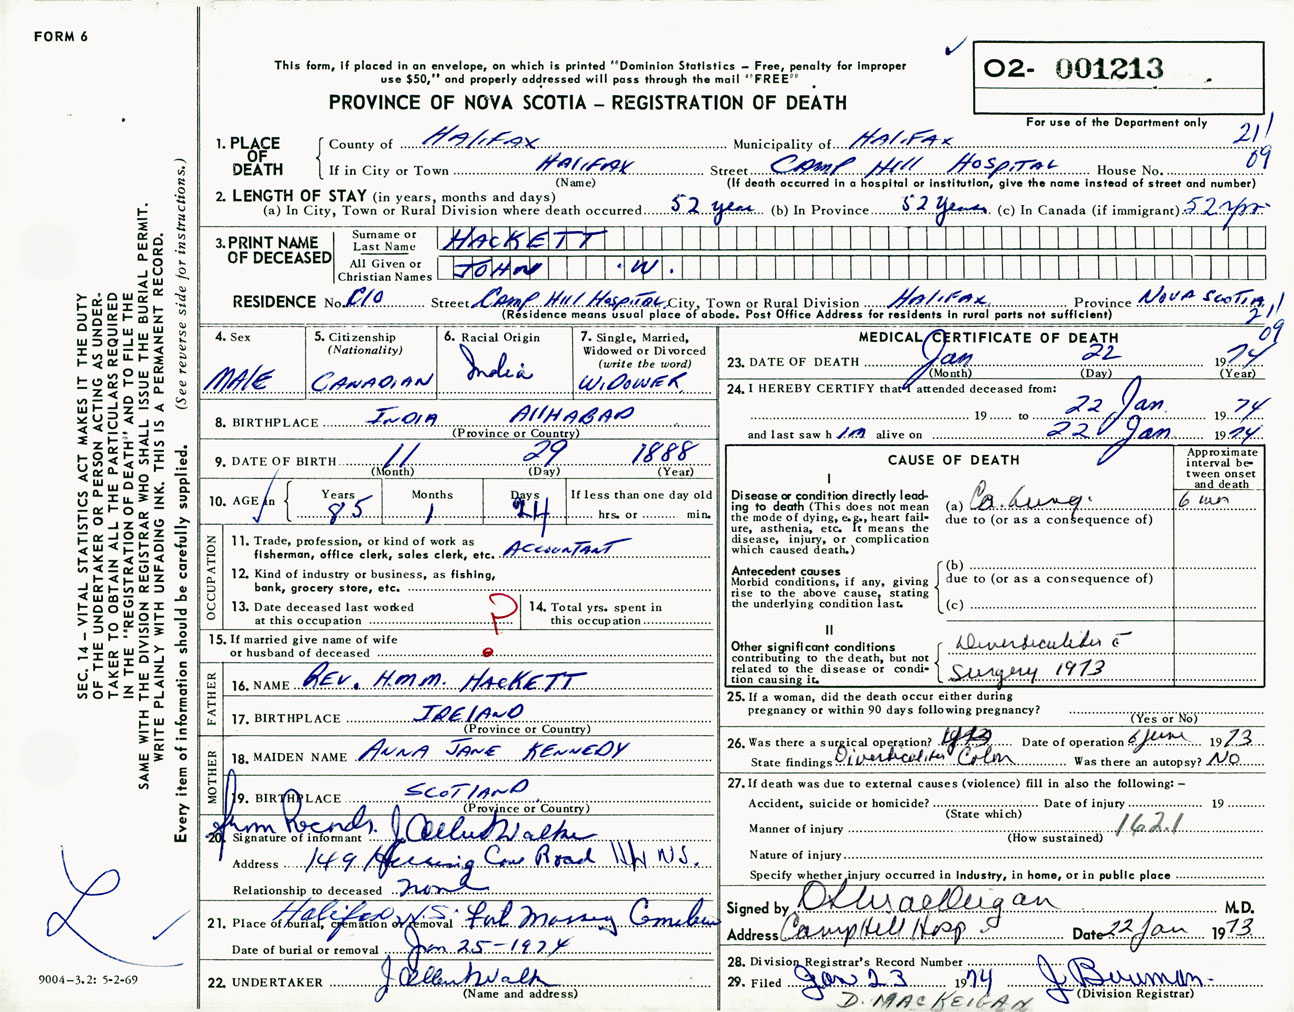 FORM 6
This form, if placed in an envelope, on which is printed "Dominion Statistics – Free, penalty for improper
use $50," and properly addressed will pass through the mail "FREE"
PROVINCE OF NOVA SCOTIA – REGISTRATION OF DEATH
O2- 001213
For use of the Department only
21
09
1. PLACE OF DEATH
County of HALIFAX Municipality of HALIFAX
If in City or Town HALIFAX Street CAMP HILL HOSPITAL House No.
(Name) (If death occurred in a hospital or institution, give the name instead of street and number)
2. LENGTH OF STAY (in years, months and days)
(a) In City, Town or Rural Division where death occurred 52 years (b) In Province 52 Years (c) In Canada (if immigrant) 52 yrs
3. PRINT NAME OF DECEASED
Surname or Last Name HACKETT
All Given or Christian Names JOHN W.
RESIDENCE No. C/O Street Camp Hill Hospital City, Town or Rural Division HALIFAX Province NOVA SCOTIA
(Residence means usual place of abode. Post Office Address for residents in rural parts not sufficient)
21
09
4. Sex
MALE
5. Citizenship
(Nationality)
CANADIAN
6. Racial Origin
India
7. Single, Married,
Widowed or Divorced
(write the word)
WIDOWER
8. BIRTHPLACE INDIA AllHABAD
(Province or Country)
9. DATE OF BIRTH 11 29 1888
(Month) (Day) (Year)
10. AGE in
Years Months Days If less than one day old
85 1 24 hrs. or min.
OCCUPATION
11. Trade, profession, or kind of work as
fisherman, office clerk, sales clerk, etc. ACCOUNTANT
12. Kind of industry or business, as fishing,
bank, grocery store, etc.
13. Date deceased last worked
at this occupation
?
14. Total yrs. spent in
this occupation
15. If married give name of wife
or husband of deceased
FATHER
16. NAME REV. H.M.M. HACKETT
17. BIRTHPLACE IRELAND
(Province or Country)
MOTHER
18. MAIDEN NAME ANNA JANE KENNEDY
19. BIRTHPLACE SCOTLAND
(Province or Country)
from Records.
20. Signature of informant J Allen Walker
Address 149 Herring Cove Road Hfx N.S.
Relationship to deceased none
21. Place of burial, cremation or removal Halifax N.S. Fort Massey Cemetery
Date of burial or removal Jan 25-1974
22. UNDERTAKER J Allen Walker
(Name and address)
MEDICAL CERTIFICATE OF DEATH
23. DATE OF DEATH Jan 22 1974
(Month) (Day) (Year)
24. I HEREBY CERTIFY that I attended deceased from:
19 to 22 Jan 1974
and last saw h im alive on 22 Jan 1974
CAUSE OF DEATH
Approximate
interval be-
tween onset
and death
I
Disease or condition directly lead-
ing to death (This does not mean
the mode of dying, e.g., heart fail-
ure, asthenia, etc. It means the
disease, injury, or complication
which caused death.)
(a) Ca. Lung. 6 mon
due to (or as a consequence of)
Antecedent causes
Morbid conditions, if any, giving
rise to the above cause, stating
the underlying condition last.
(b)
due to (or as a consequence of)
(c)
II
Other significant conditions
contributing to the death, but not
related to the disease or condi-
tion causing it.
Diverticulitis c̄
Surgery 1973
25. If a woman, did the death occur either during
pregnancy or within 90 days following pregnancy?
(Yes or No)
26. Was there a surgical operation? Date of operation 6 June 1973
State findings Diverticulitis Colon Was there an autopsy? NO
27. If death was due to external causes (violence) fill in also the following: –
Accident, suicide or homicide? Date of injury 19
(State which)
Manner of injury 1621
(How sustained)
Nature of injury
Specify whether injury occurred in Industry, in home, or in public place
Signed by D MacKeigan M.D.
Address Camp Hill Hosp Date 22 Jan 1973
28. Division Registrar's Record Number
29. Filed Jan 23 1974 J Bowman
(Division Registrar)
D. MACKEIGAN
SEC. 14 – VITAL STATISTICS ACT MAKES IT THE DUTY
OF THE UNDERTAKER OR PERSON ACTING AS UNDER-
TAKER TO OBTAIN ALL THE PARTICULARS REQUIRED
IN THE "REGISTRATION OF DEATH" AND TO FILE THE
SAME WITH THE DIVISION REGISTRAR WHO SHALL ISSUE THE BURIAL PERMIT.
WRITE PLAINLY WITH UNFADING INK. THIS IS A PERMANENT RECORD.
Every item of information should be carefully supplied. (See reverse side for instructions.)
L
9004-3.2: 5-2-69